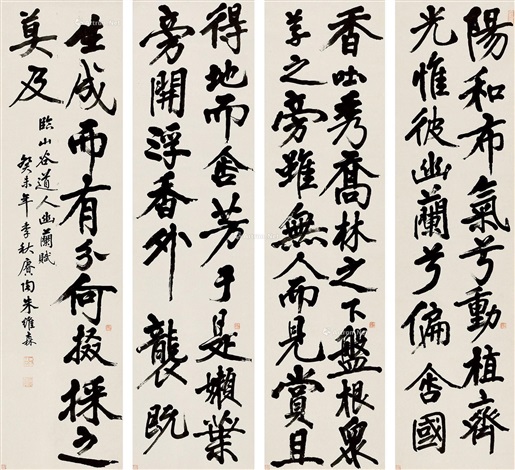 陽和布氣兮動植齊
光惟彼幽蘭兮偏含國
香吐秀喬林之下盤根眾
草之旁雖無人而見賞且
得地而含芳于是嫩葉
旁開浮香外襲既
生成而有分何掇採之
莫及
臨山谷道人幽蘭賦
癸未年季秋賡陶朱維森